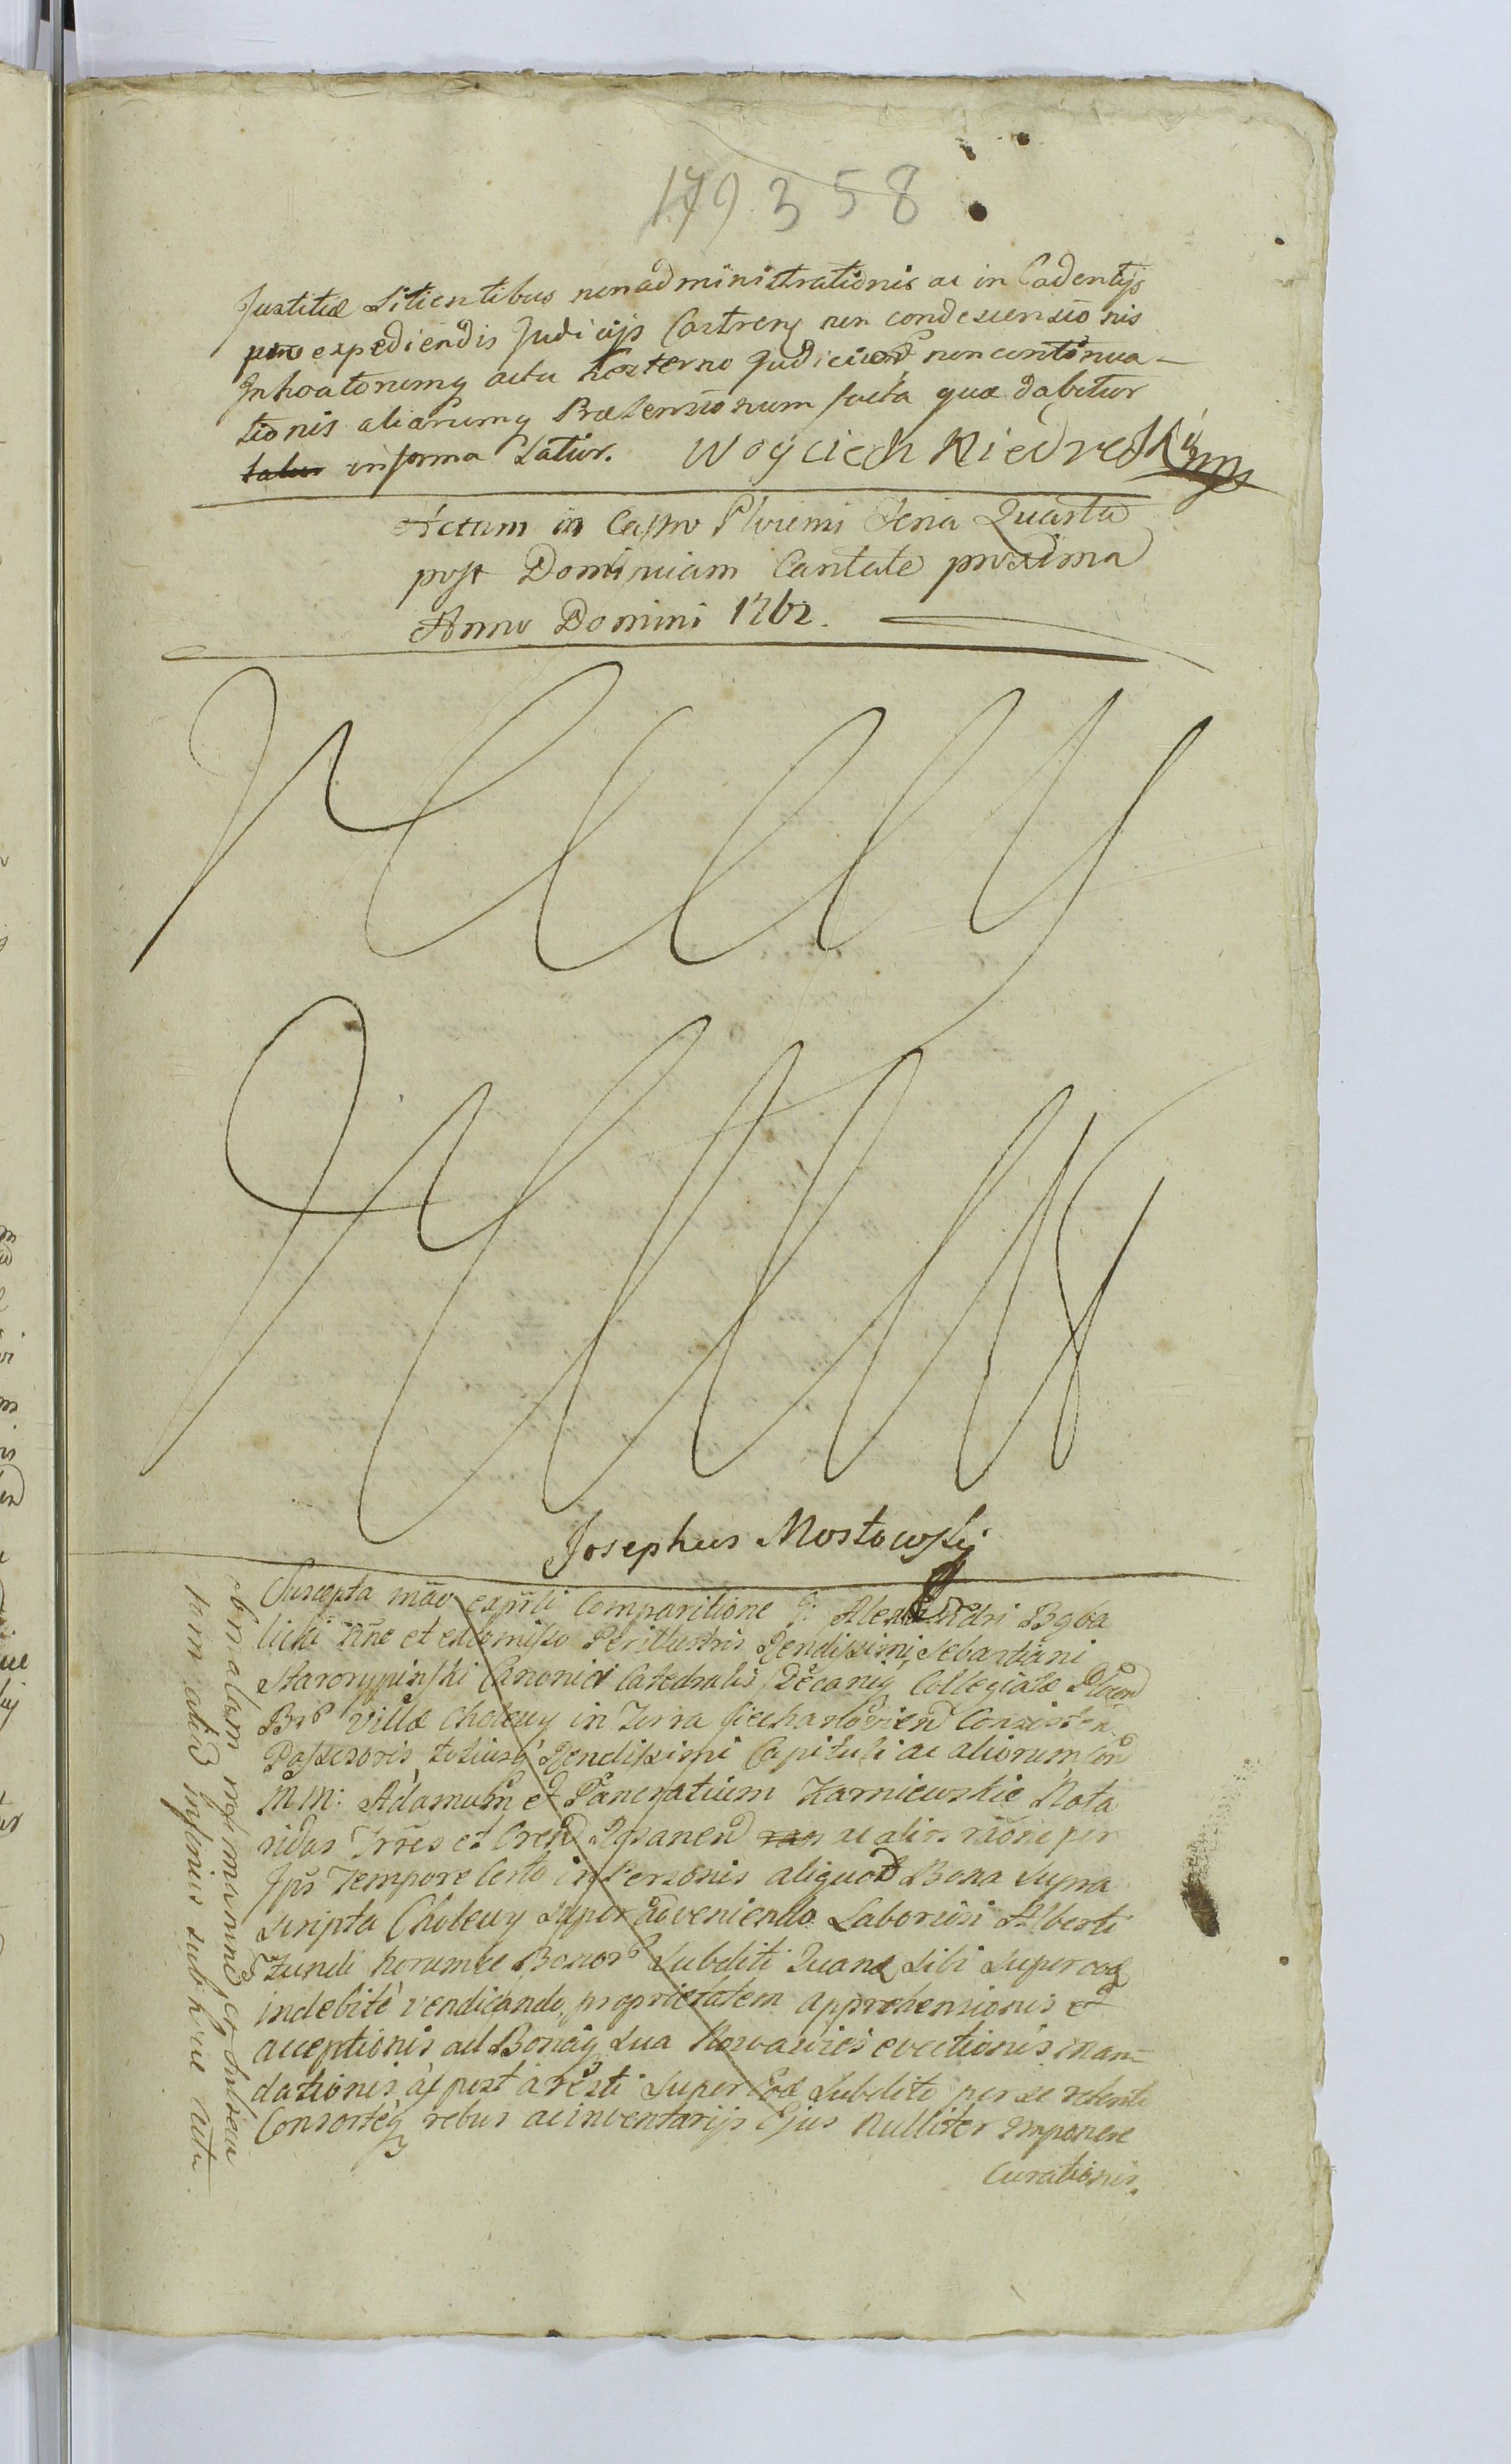 179 358
Justitiæ Sitientibus non administrationis ac in Cadentijs
expediendis Judicijs Castren non condescensionis
Inhoatorumq actu hesterno Judiciorum non continua-
tionis aliarumq Prætensionum facta quæ dabitur
informa Latior. Woyciech Niedre
Actum in Castro Plocensi Feria Quarta
post Dominicam Cantate proxima
Anno Domini 1762.
Josephus Mostowskj
Suscepta Comparitione G: Alexandri Bąba
licki nne et ex Perillustris Rendissimi Sebastiani
Starorypinski Canonici Catedralis Decaniq Collegiatæ Plocen
Villæ Cholewy in Terra Ciechanovien Consisten
Possesoris totiusq Rendissimi Capituli ac aliorum
MM: Adamum et Pancratium Karniewskie Nota
ridas Trres et Cren Rosanen ac alios raone per
Ipsos Tempore Certo in Personis aliquod Bona supra
scripta Cholewy superadveniendo Laboriosi Alberti
Zundi horumce Bonor Subditi sibi super
indebitè vendicando proprietatem apprehensionis et
acceptionis ad Bonaq sua evectionis man-
dationis ac post aresti super Subdito per se retenti
Consorteq rebus ac inventarijs Ejus nulliter Imponere
Curationis.
ob malam et
tum aliud inferius sub hoc actu